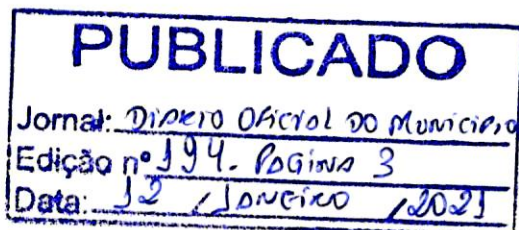 PUBLICADO
Jornal: DIÁRIO OFICIAL DO MUNICIPIO
Edição nº 194 - PAGINA 3
Data: 12 / JANEIRO / 2021